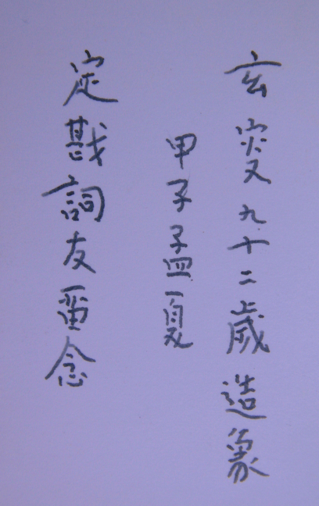 玄叟九十二歲造象
甲子孟夏
定戡詞友畱念